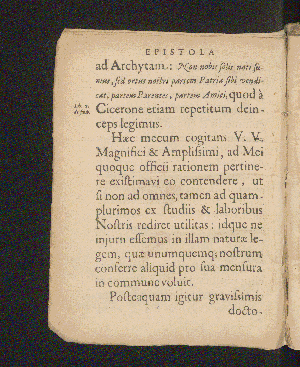 EPISTOLA
ad Archytam.: Non nobis solis nati su-
mus, sed ortus nostri partem Patria sibi vendi-
cat, partem Parentes, partem Amici, quod à
Cicerone etiam repetitum dein-
ceps legimus.
Hæc mecum cogitans V. V.
Magnifici & Amplissimi, ad Mei
quoque officii rationem pertine-
re existimavi eo contendere, ut
si non ad omnes, tamen ad quam-
plurimos ex studiis & laboribus
Nostris rediret utilitas: idque ne
injurii essemus in illam naturæ le-
gem, quæ unumquemq; nostrum
conferre aliquid pro sua mensura
in commune voluit.
Posteaquam igitur gravissimis
docto-